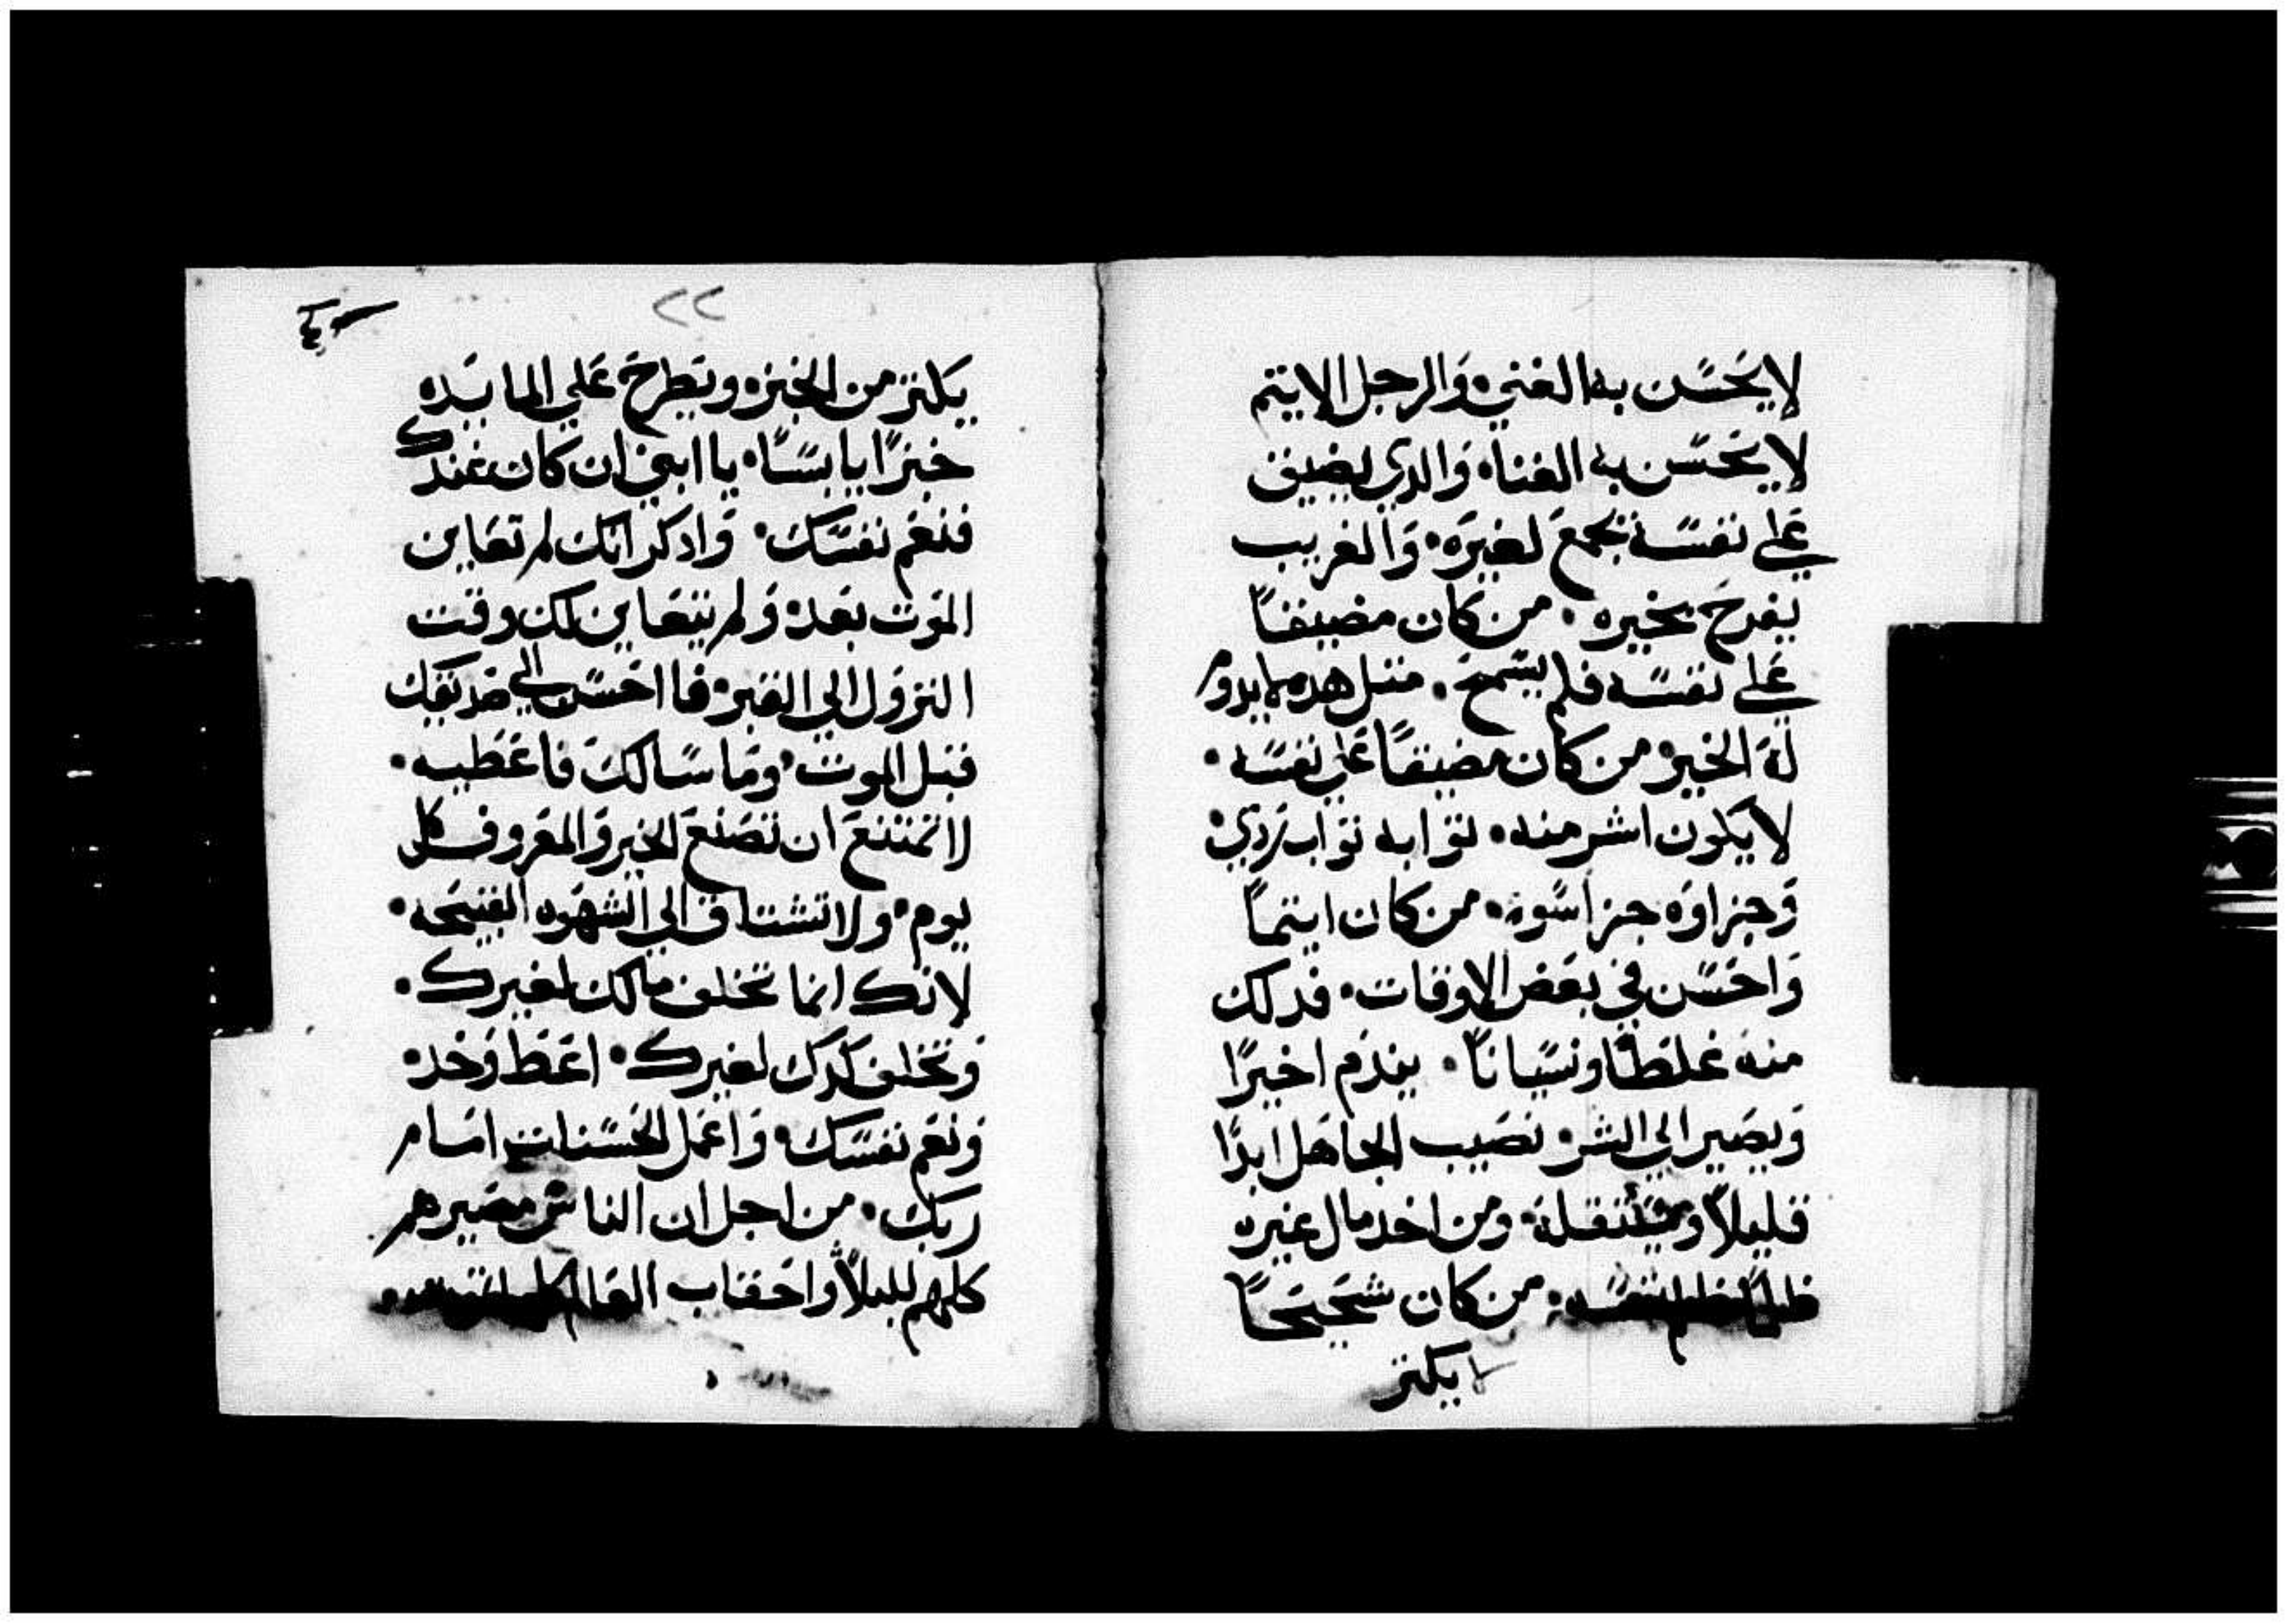 لا يحسن به الغني. والرجل الايتم
لا يحسن به الغناه والدي يضيق
علي نفسه يجمع لغيره. والغريب
يفرح بخيره. من كان مضيقًا
علي نفسه فلم يسمح. متل هده لا يدوم
له الخير. من كان مضيقًا علي نفسه.
لا يكون اشر منه. توابه تواب ردي.
وجزاوه جزا سوه. من كان ايتمًا
واحسن في بعض الاوقات. فدلك
منه غلطًا ونسيانًا. يندم اخيرًا
ويصير الي الشر. نصيب الجاهل ابدًا
قليلاً ومستقله. ومن اخد مال غيره
ظلمًا ظلم نفسه. من كان شحيحًا
لا يكتر
٢٢
يكتر من الخبز. ويطرح علي المايده
خبزًا يابسًا. يا ابني ان كان عندك
فنعم نفسك. وادكر انك لم تعاين
الموت بعد. ولم يتعاين لك وقت
النزول الي القبر. فا احسن الي صديقك
قبل الموت. وما سالك فاعطيه.
لا تمتنع ان تصنع الخير والمعروف كل
يوم. ولا تشتاق الي الشهوه القبيحه.
لانك انما تخلف مالك لغيرك.
وتخلف كدك لغيرك. اعط وخد.
ونعم نفسك. واعمل الحسنات امام
ربك. من اجل ان الناس مصيرهم
كلهم للبلاً واحقاب العالم